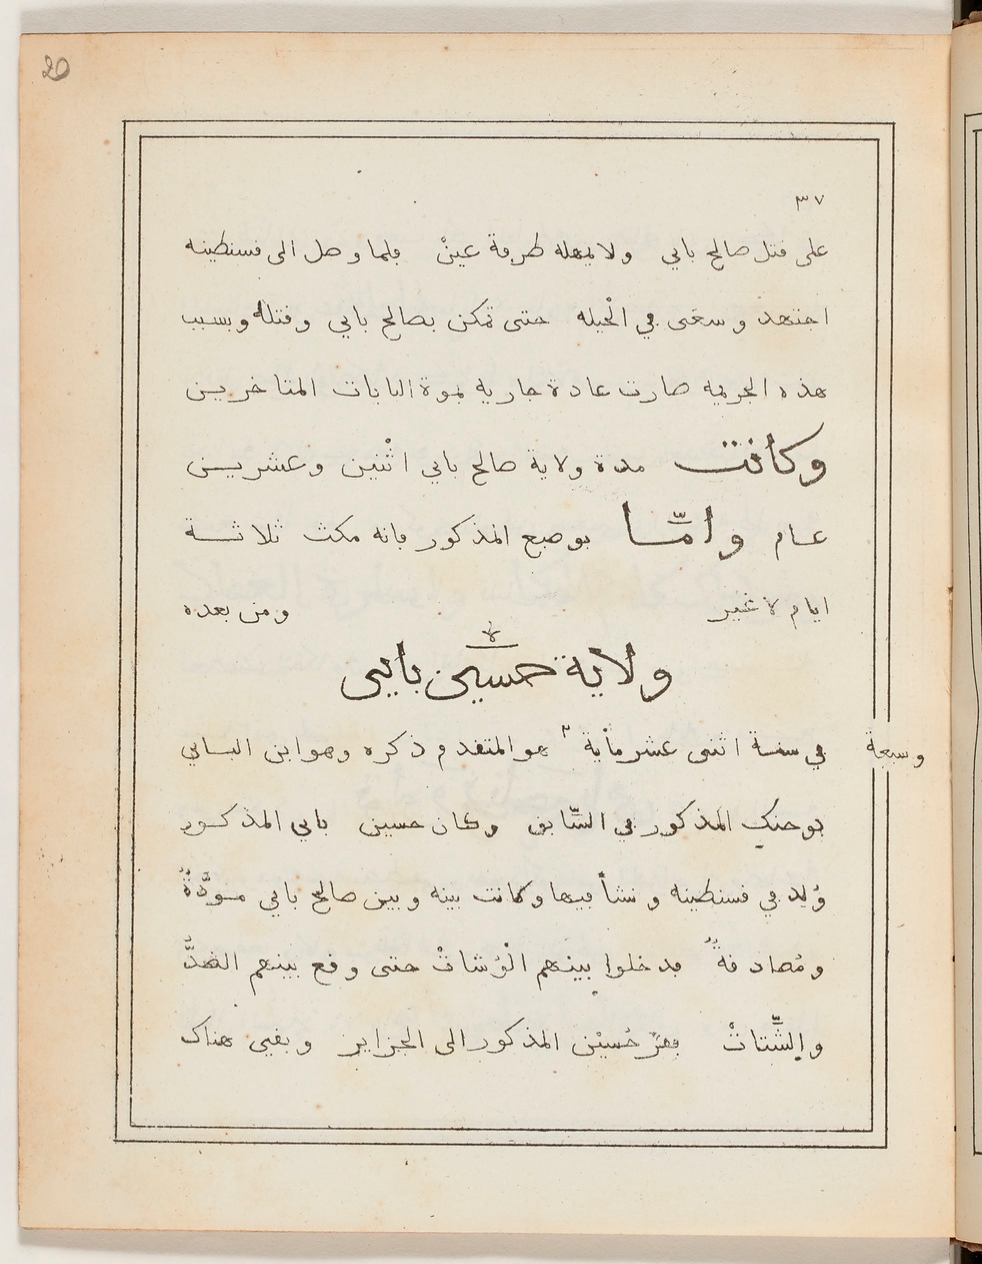 20
٣٧
على قتل صالح بايي ولا يمهله طرفة عينْ فلما وصل الى قسنطينه
اجتهد وسعَى في الْحيله حتى تمكن بصالح بايي وقتله وبسبب
هذه الجريمه صارت عادة جاريه لموة البايات المتاخرين
وكانت مدة ولاية صالح بايي اثْنين وعشرين
عام وامّا بوصبع المذكور فانه مكث ثلاثة
ايام لا غير ومن بعده
ولاية حسين بايي
في سنة اثنى عشر مأية ٢ هو المتقدم ذكره وهو ابن البايي
وسبعة
بوحنك المذكور في السّابق وكان حسين بايي المذكور
وُلِد في قسنطينه ونشأ فيها وكانت بينه وبين صالح بايي مودَّةٌ
ومُصادفةٌ فدخلوا بينهم الْوُشاتْ حتى وقع بينهم الضدُّ
والشِّتاتْ فهرّ حُسيْن المذكور الى الجزاير وبقيى هناك